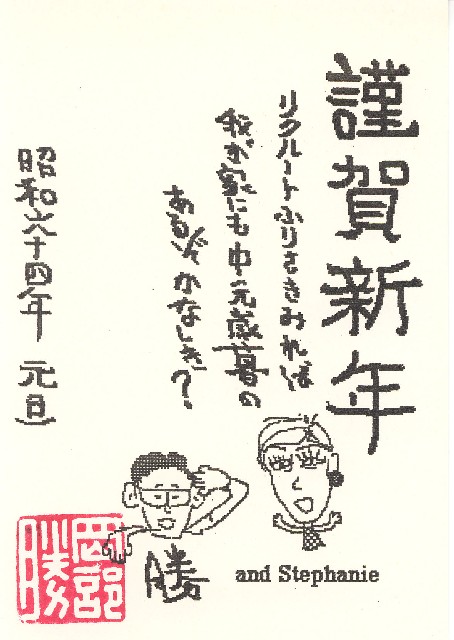 謹賀新年
リクルートふりさきみれば
我が家にも中元歳暮の
あるぞかなしき？
昭和六十四年 元旦
勝
and Stephanie
岡部
勝